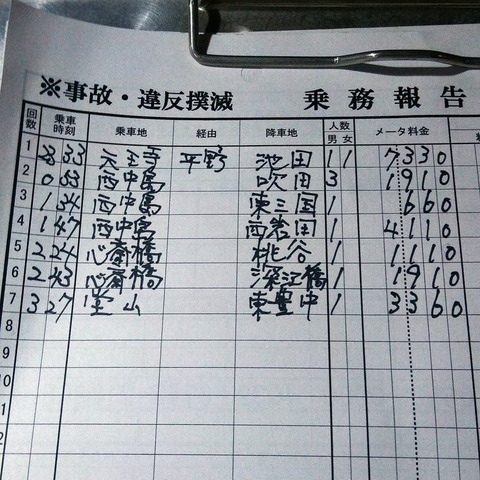 ※事故・違反撲滅 乗務報告
回数 乗車時刻 乗車地 経由 降車地 人数 男 女 メータ料金
1 23 33 天王寺 平野 池田 1 1 7330
2 0 53 西中島 吹田 3 1910
3 1 34 西中島 東三国 1 660
4 1 47 西中島 西岩田 1 4110
5 2 24 心斎橋 桃谷 1 1110
6 2 43 心斎橋 深江橋 1 1910
7 3 27 堂山 東豊中 1 3360
8
9
10
11